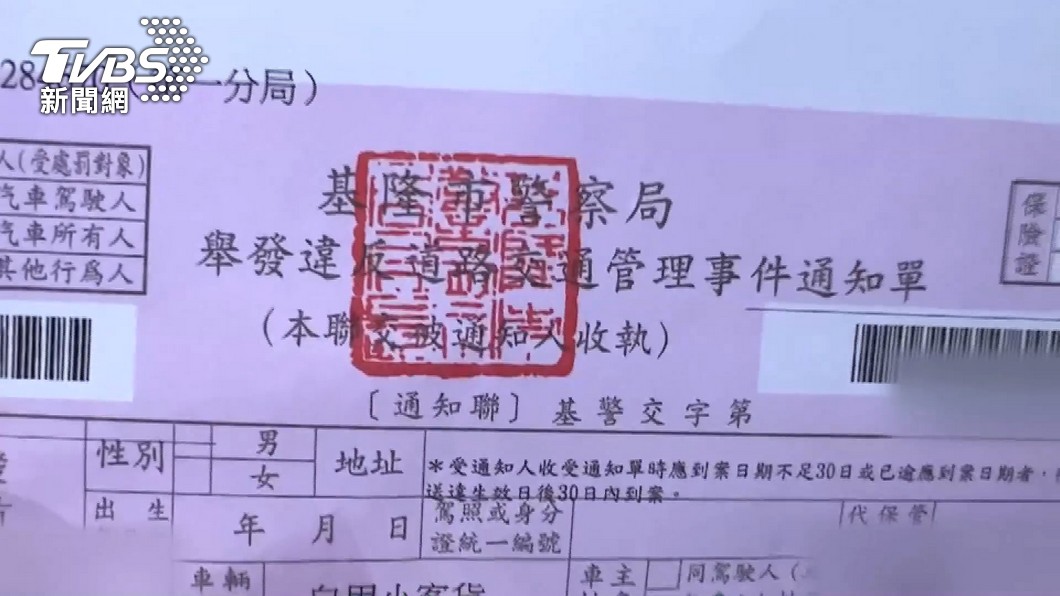 TVBS
新聞網
一分局)
人(受處罰對象)
汽車駕駛人
汽車所有人
其他行爲人
基隆市警察局
舉發違反道路交通管理事件通知單
(本聯交被通知人收執)
〔通知聯〕 基警交字第
保險證
性別
男
女
地址
*受通知人收受通知單時應到案日期不足30日或已逾應到案日期者,
送達生效日後30日內到案。
出生
年 月 日
駕照或身分
證統一編號
代保管
車輛
自用小客貨
車主
同駕駛人(